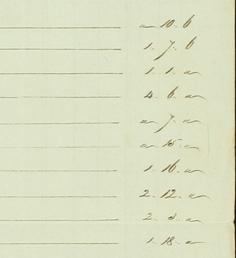 " 10. 6
1. 7. 6
1. 1. "
4. 6. "
" 7. "
" 15. "
1. 16. "
2. 12. "
2. 3. "
1. 18. "